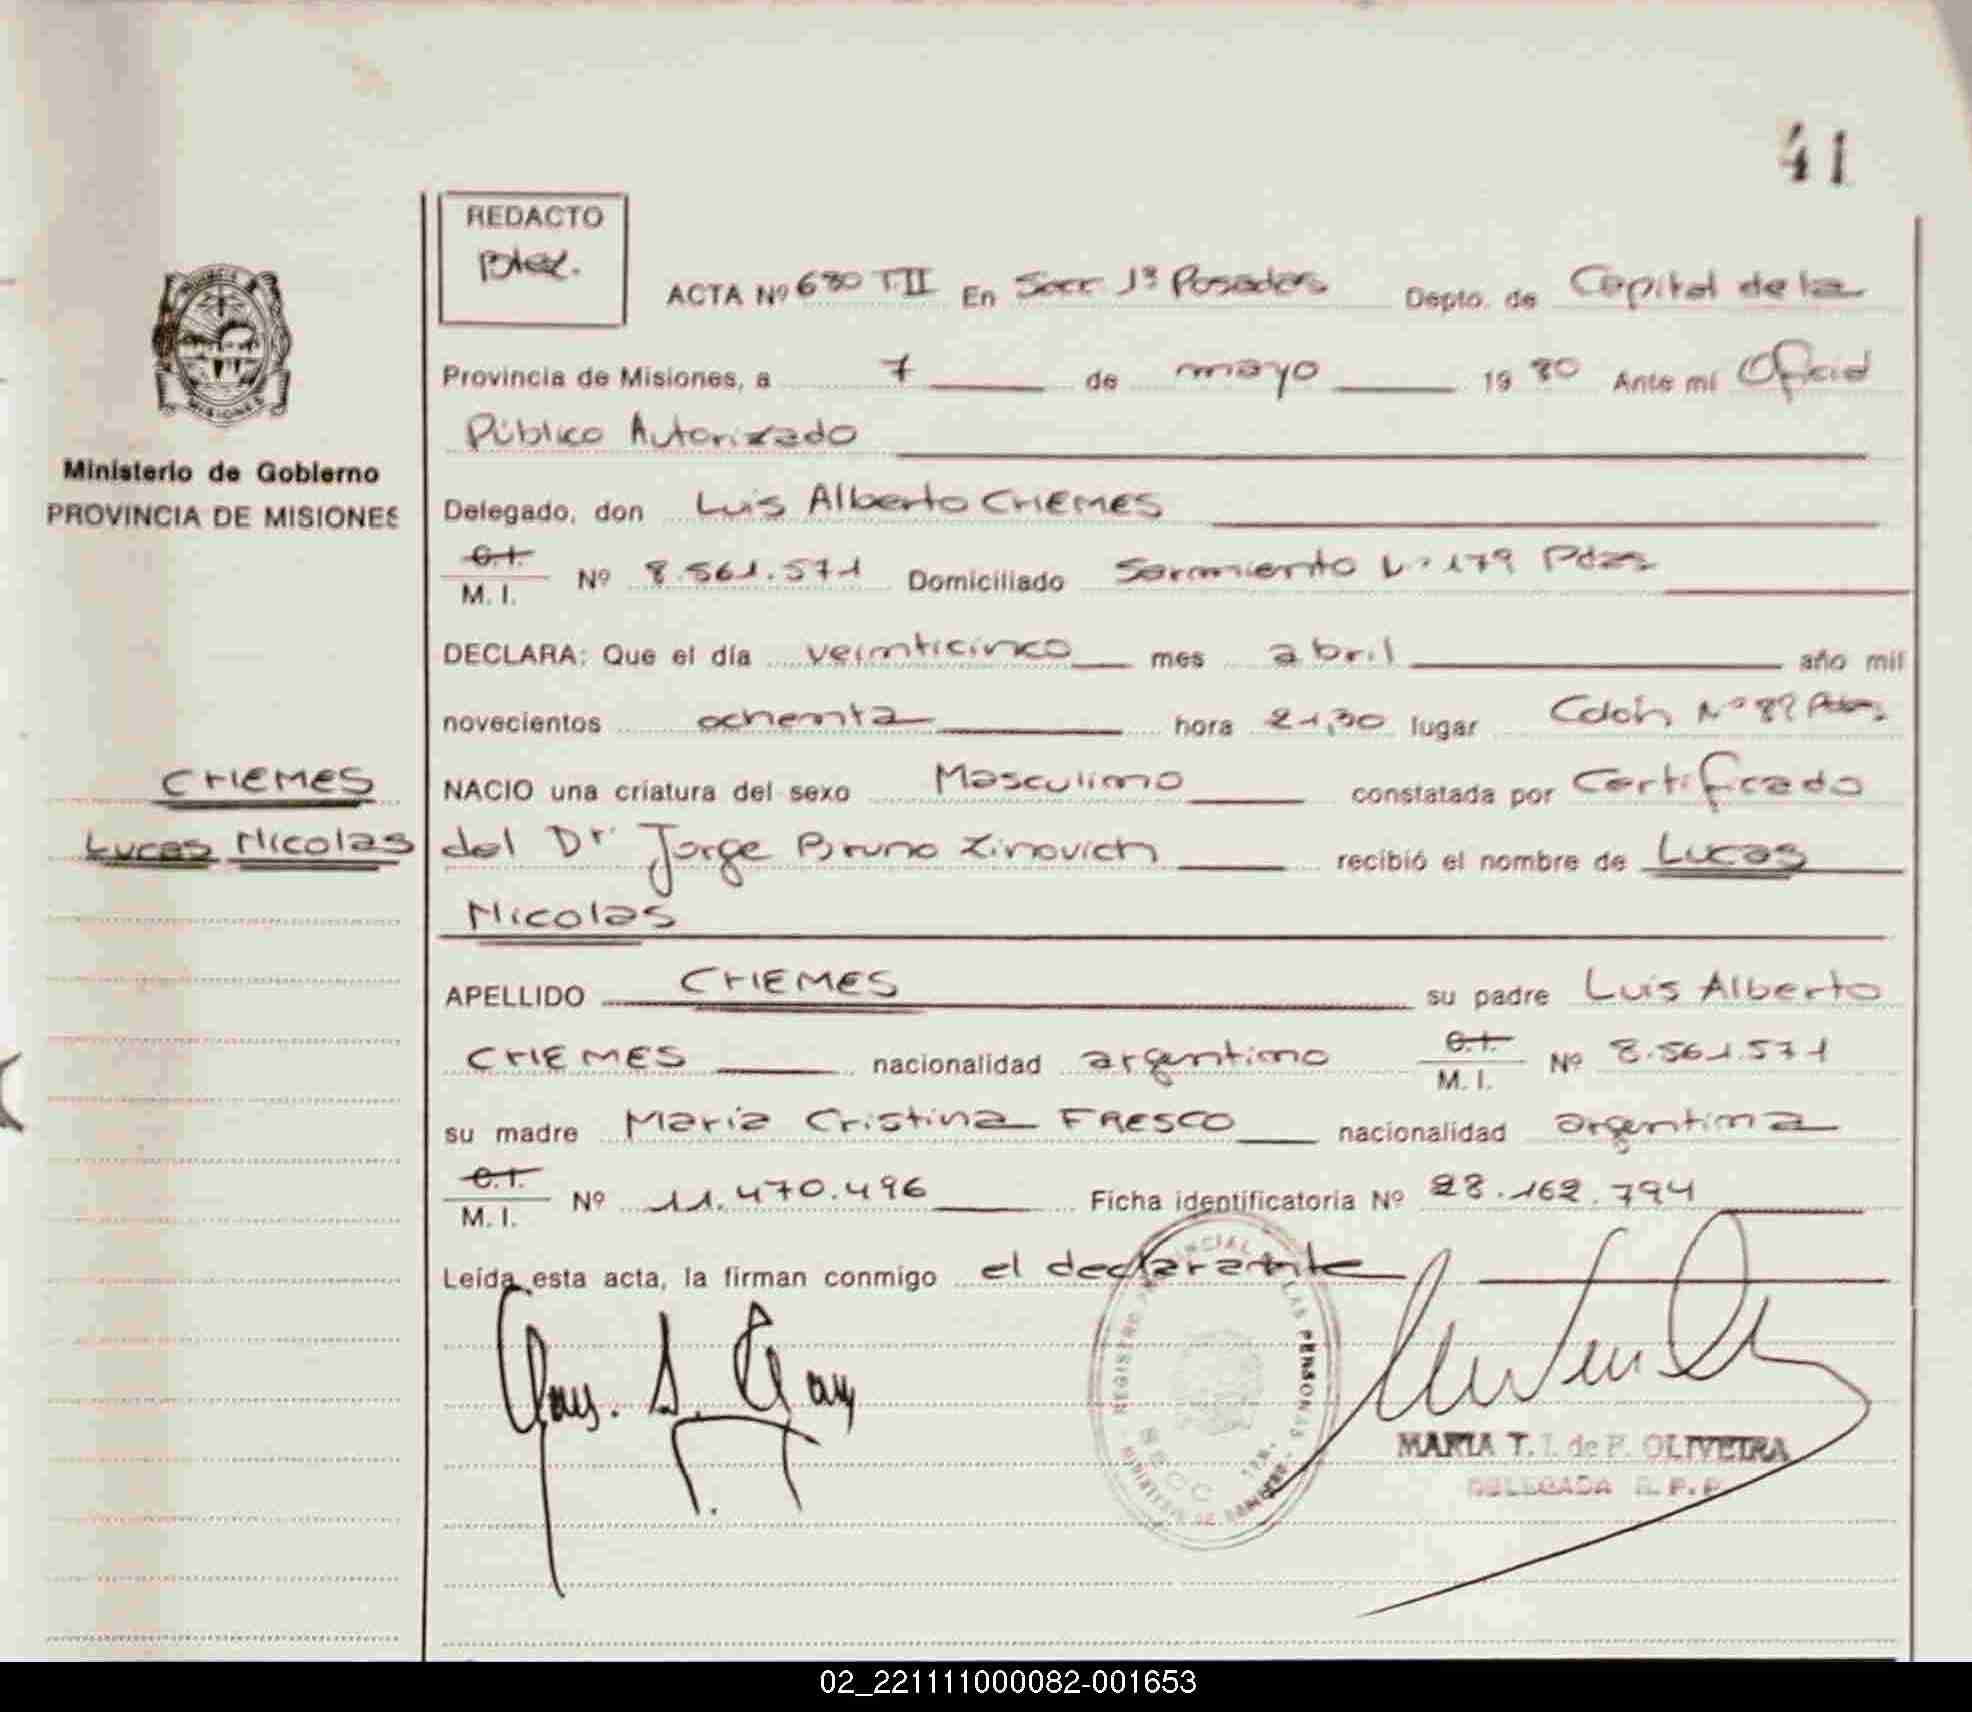 41
REDACTO
ACTA Nº 680 T.II En Secc 1ª Posadas Depto. de Capital de la
Provincia de Misiones, a 7 de mayo 19 80 Ante mí Oficial
Público Autorizado
Ministerio de Gobierno
PROVINCIA DE MISIONES
Delegado, don Luis Alberto CHEMES
C.I. M. I. Nº 8.561.571 Domiciliado Sarmiento L. 179 Pdas
DECLARA: Que el día veinticinco mes abril año mil
novecientos ochenta hora 21,30 lugar Colón Nº Pdas
CHEMES
Lucas Nicolas
NACIO una criatura del sexo Masculino constatada por Certificado
del Dr Jorge Bruno Zinovich recibió el nombre de Lucas
Nicolas
APELLIDO CHEMES su padre Luis Alberto
CHEMES nacionalidad argentino C.I. M. I. Nº 8.561.571
su madre María Cristina FRESCO nacionalidad argentina
C.I. M. I. Nº 11.470.496 Ficha identificatoria Nº 28.162.794
Leída esta acta, la firman conmigo el declarante
REGISTRO PROVINCIAL DE LAS PERSONAS
SECC 1RA.
MARIA T. I. de F. OLIVEIRA
DELEGADA R. P. P.
02_221111000082-001653